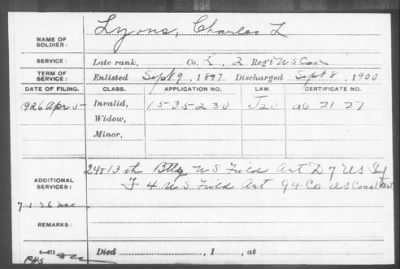 NAME OF SOLDIER: Lyons, Charles L
SERVICE: Late rank, Co. L, 2 Reg't U S Cav
TERM OF SERVICE: Enlisted Sept 9, 1897 Discharged Sept 8, 1900
DATE OF FILING. CLASS. APPLICATION NO. LAW. CERTIFICATE NO.
1926 Apr 5- Invalid, 15-35-230
Widow,
Minor,
ADDITIONAL SERVICES: 24 & 13th Btty U S Field Art D 7 U S
F 4 U.S. Field Art 94 Co. U S Coast Art
7-1-26
REMARKS:
Died , 1 , at